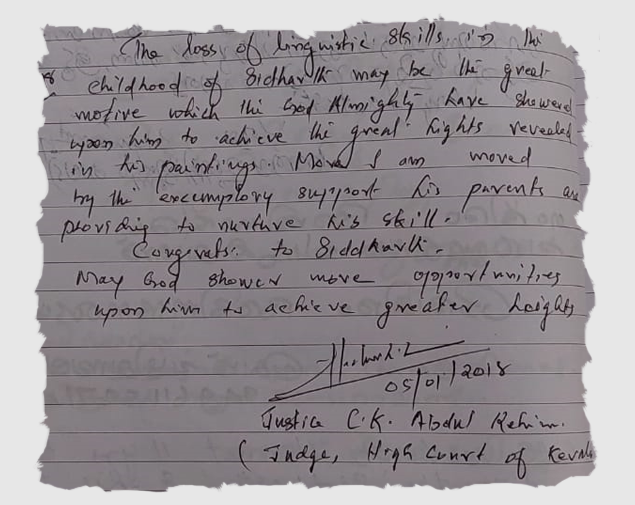 The loss of linguistic skills in the
childhood of Sidharth may be the great
motive which the God Almighty have showered
upon him to achieve the great hights revealed
in his paintings. More I am moved
by the excemplory support his parents are
providing to nurture his skill.
Congrats. to Siddharth.
May God shower more opportunities
upon him to achieve greater heights
05/01/2018
Justice C.K. Abdul Rehim.
( Judge, High Court of Kerala